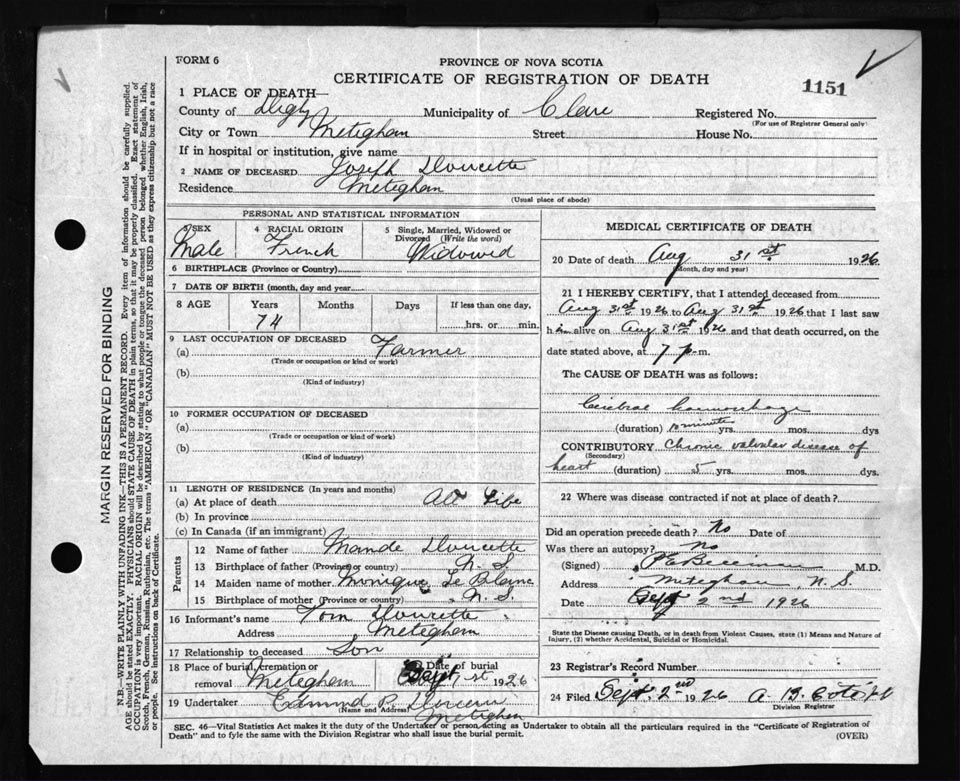 FORM 6
PROVINCE OF NOVA SCOTIA
CERTIFICATE OF REGISTRATION OF DEATH
1151
1 PLACE OF DEATH—
County of Digby Municipality of Clare Registered No.
(For use of Registrar General only)
City or Town Meteghan Street House No.
If in hospital or institution, give name
2 NAME OF DECEASED Joseph Doucette
Residence Meteghan
(Usual place of abode)
PERSONAL AND STATISTICAL INFORMATION
3 SEX 4 RACIAL ORIGIN 5 Single, Married, Widowed or
Divorced (Write the word)
Male French Widowed
6 BIRTHPLACE (Province or Country)
7 DATE OF BIRTH (month, day and year)
8 AGE Years Months Days If less than one day,
74 hrs. or min.
9 LAST OCCUPATION OF DECEASED
(a) Farmer
(Trade or occupation or kind of work)
(b)
(Kind of industry)
10 FORMER OCCUPATION OF DECEASED
(a)
(Trade or occupation or kind of work)
(b)
(Kind of industry)
11 LENGTH OF RESIDENCE (In years and months)
(a) At place of death All Life
(b) In province
(c) In Canada (if an immigrant)
Parents
12 Name of father Mande Doucette
13 Birthplace of father (Province or country) N. S.
14 Maiden name of mother Monique Le Blanc
15 Birthplace of mother (Province or Country) N. S.
16 Informant's name Tom Doucette
Address Meteghan
17 Relationship to deceased Son
18 Place of burial, cremation or Date of burial
removal Meteghan Sept 1st 1926
19 Undertaker Edmund P.
(Name and Address)
Meteghan
MEDICAL CERTIFICATE OF DEATH
20 Date of death Aug 31st 1926
(Month, day and year)
21 I HEREBY CERTIFY, that I attended deceased from
Aug 31st 1926 to Aug 31st 1926 that I last saw
him alive on Aug 31st 1926 and that death occurred, on the
date stated above, at 7 p.m.
The CAUSE OF DEATH was as follows:
Cerebral haemorrhage
(duration) 10 minutes yrs. mos. dys
CONTRIBUTORY Chronic valvular disease of
(Secondary)
heart (duration) 5 yrs. mos. dys.
22 Where was disease contracted if not at place of death?
Did an operation precede death? No Date of
Was there an autopsy? No
(Signed) M.D.
Address Meteghan, N. S.
Date Sept 2nd 1926
State the Disease causing Death, or in death from Violent Causes, state (1) Means and Nature of
Injury, (2) whether Accidental, Suicidal or Homicidal.
23 Registrar's Record Number
24 Filed Sept. 2nd 1926 A. B.
Division Registrar
SEC. 46—Vital Statistics Act makes it the duty of the Undertaker or person acting as Undertaker to obtain all the particulars required in the "Certificate of Registration of
Death" and to fyle the same with the Division Registrar who shall issue the burial permit.
(OVER)
MARGIN RESERVED FOR BINDING
N.B.—WRITE PLAINLY WITH UNFADING INK—THIS IS A PERMANENT RECORD. Every item of information should be carefully supplied.
AGE should be stated EXACTLY. PHYSICIANS should STATE CAUSE OF DEATH in plain terms, so that it may be properly classified. Exact statement of
OCCUPATION is very important. RACIAL ORIGIN will be described by stating to what people or tongue the deceased person belonged whether English, Irish,
Scotch, French, German, Russian, Ruthenian, etc. The terms "AMERICAN" OR "CANADIAN" MUST NOT BE USED as they express citizenship but not a race
or people. See instructions on back of Certificate.